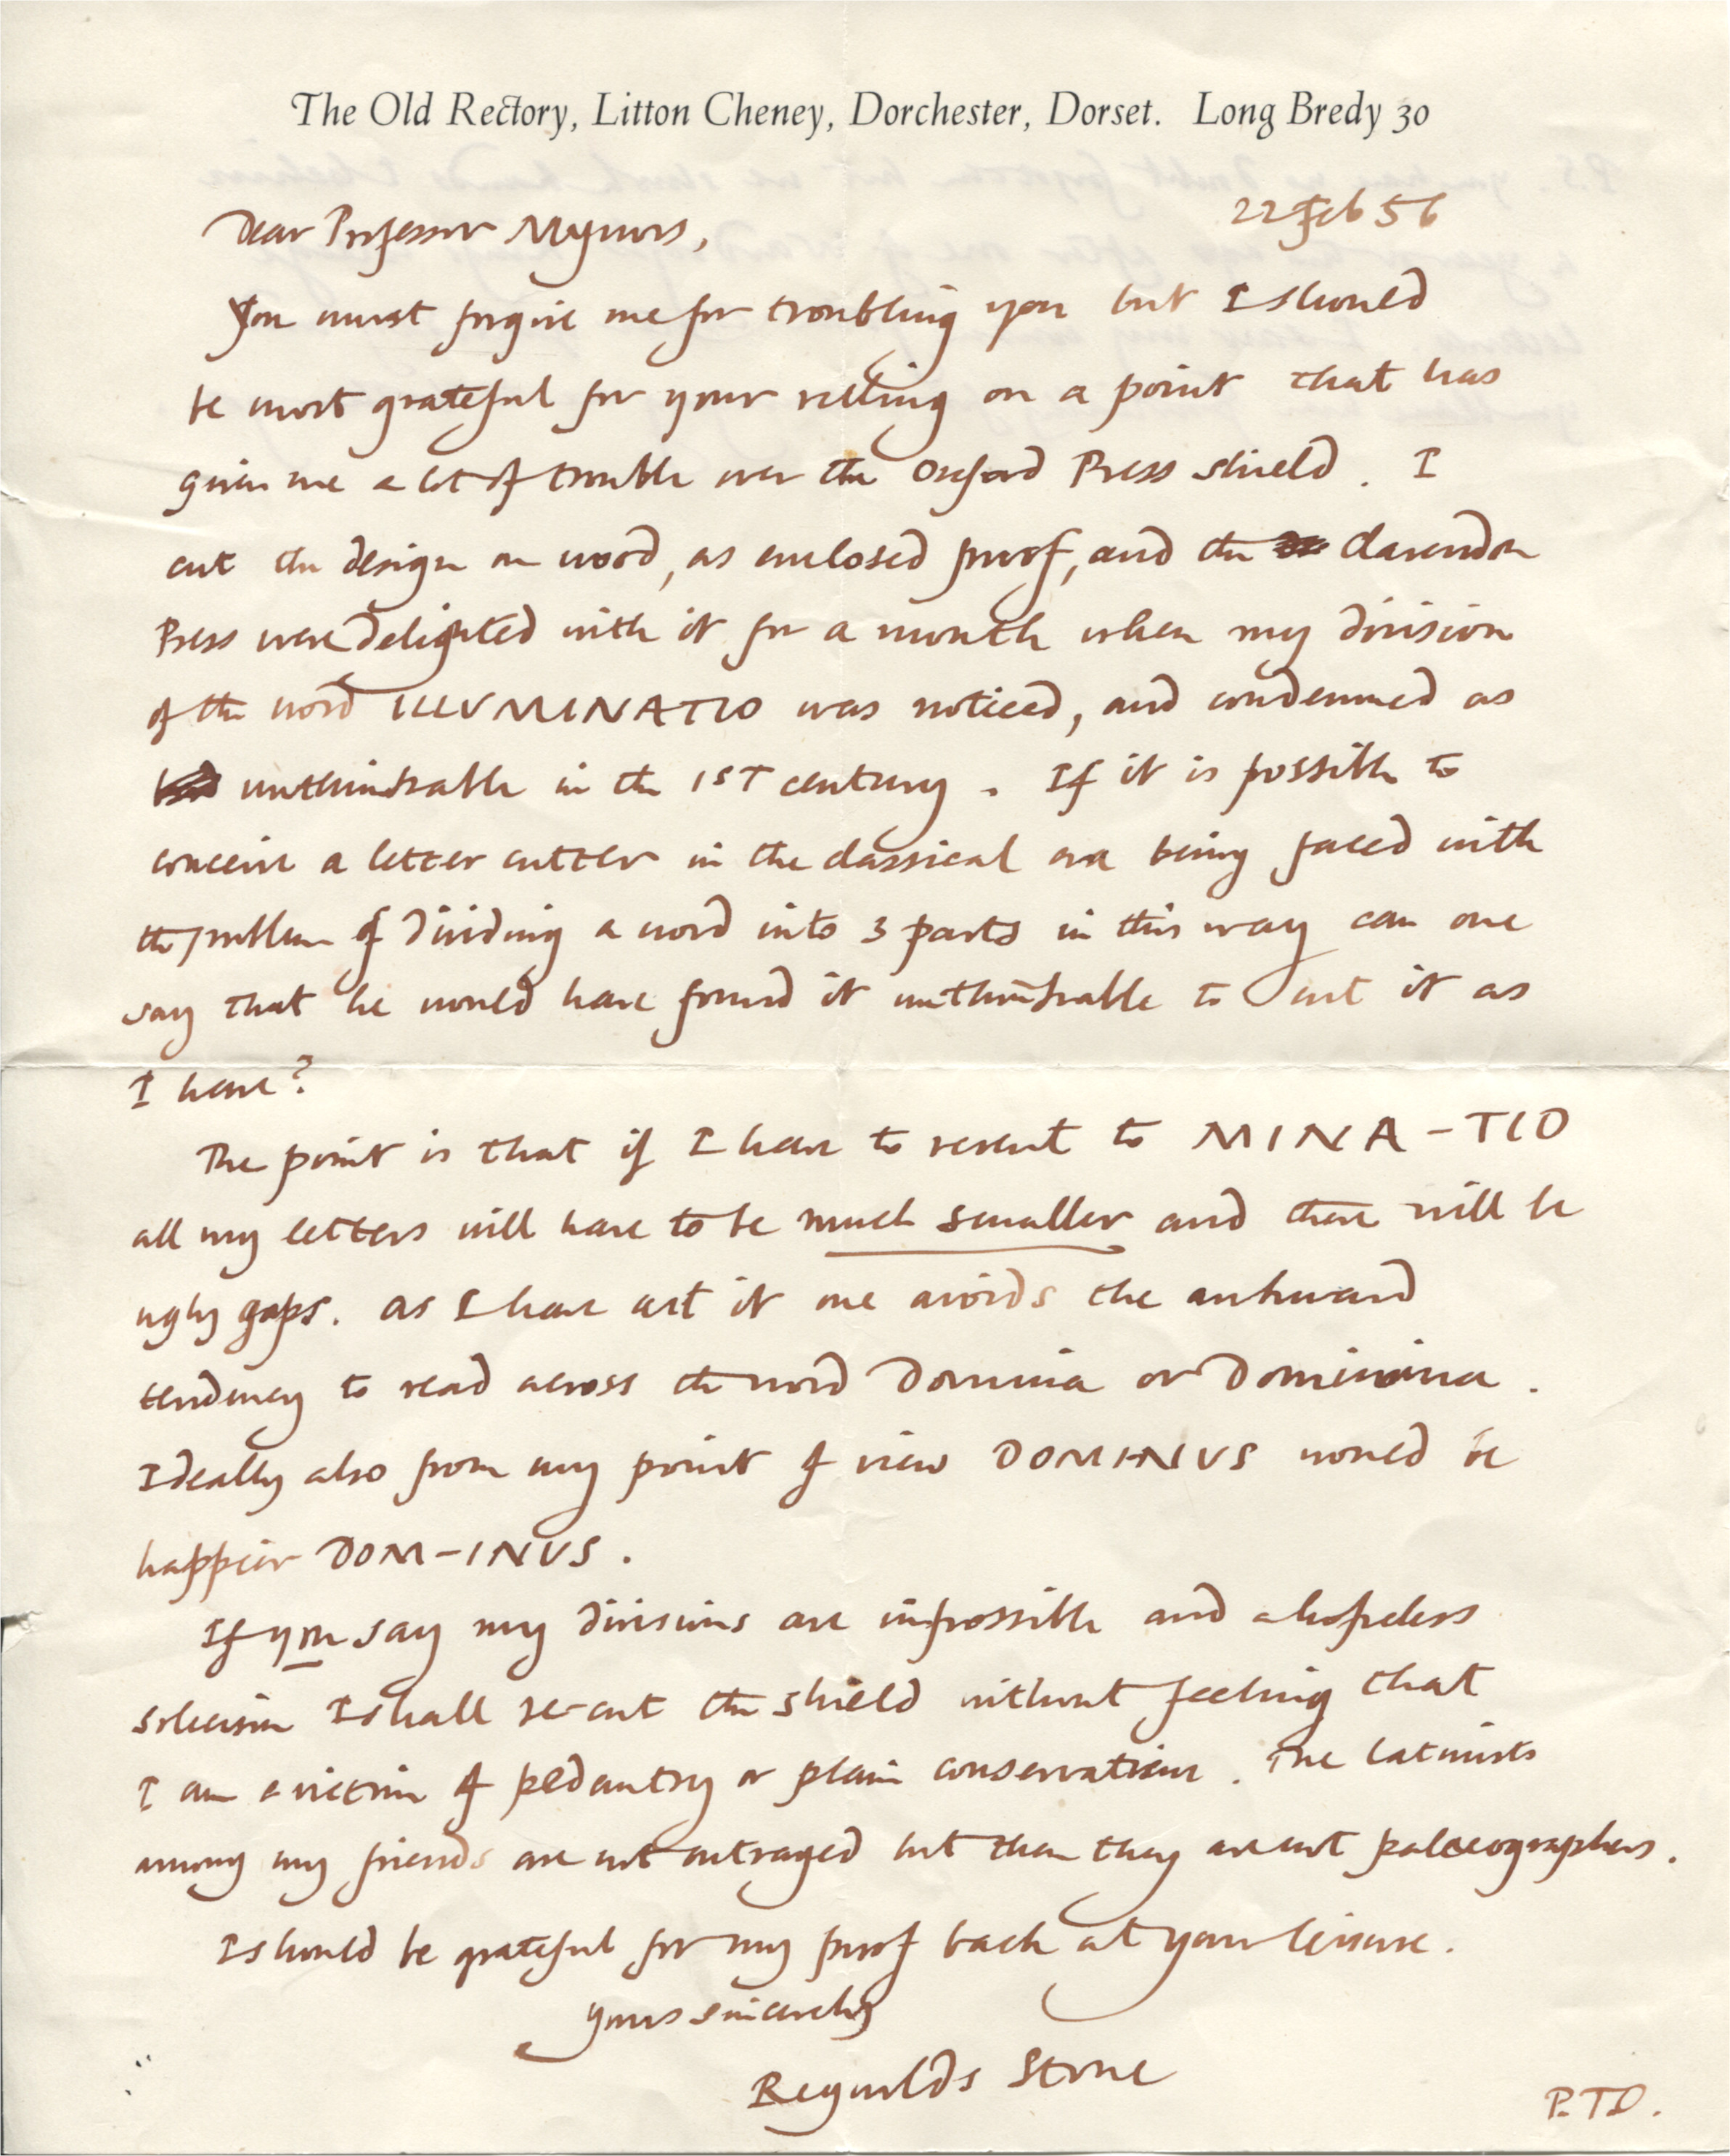 The Old Rectory, Litton Cheney, Dorchester, Dorset. Long Bredy 30
22 Feb 56
Dear Professor Mynors,
You must forgive me for troubling you but I should
be most grateful for your ruling on a point that has
given me a lot of trouble over the Oxford Press shield. I
cut the design on wood, as enclosed proof, and the Clarendon
Press were delighted with it for a month when my division
of the word ILLVMINATIO was noticed, and condemned as
unthinkable in the 1ST century. If it is possible to
conceive a letter cutter in the classical era being faced with
the problem of dividing a word into 3 parts in this way can one
say that he would have found it unthinkable to cut it as
I have?
The point is that if I have to revert to MINA-TIO
all my letters will have to be much smaller and there will be
ugly gaps. As I have cut it one avoids the awkward
tendency to read across the word Domina or Dominina.
Ideally also from my point of view DOMI-NVS would be
happier DOM-INVS.
If you say my divisions are impossible and a hopeless
solecism I shall re-cut the shield without feeling that
I am a victim of pedantry or plain conservatism. The latinists
among my friends are not outraged but then they are not palaeographers.
I should be grateful for my proof back at your leisure.
Yours sincerely
Reynolds Stone
P.T.O.